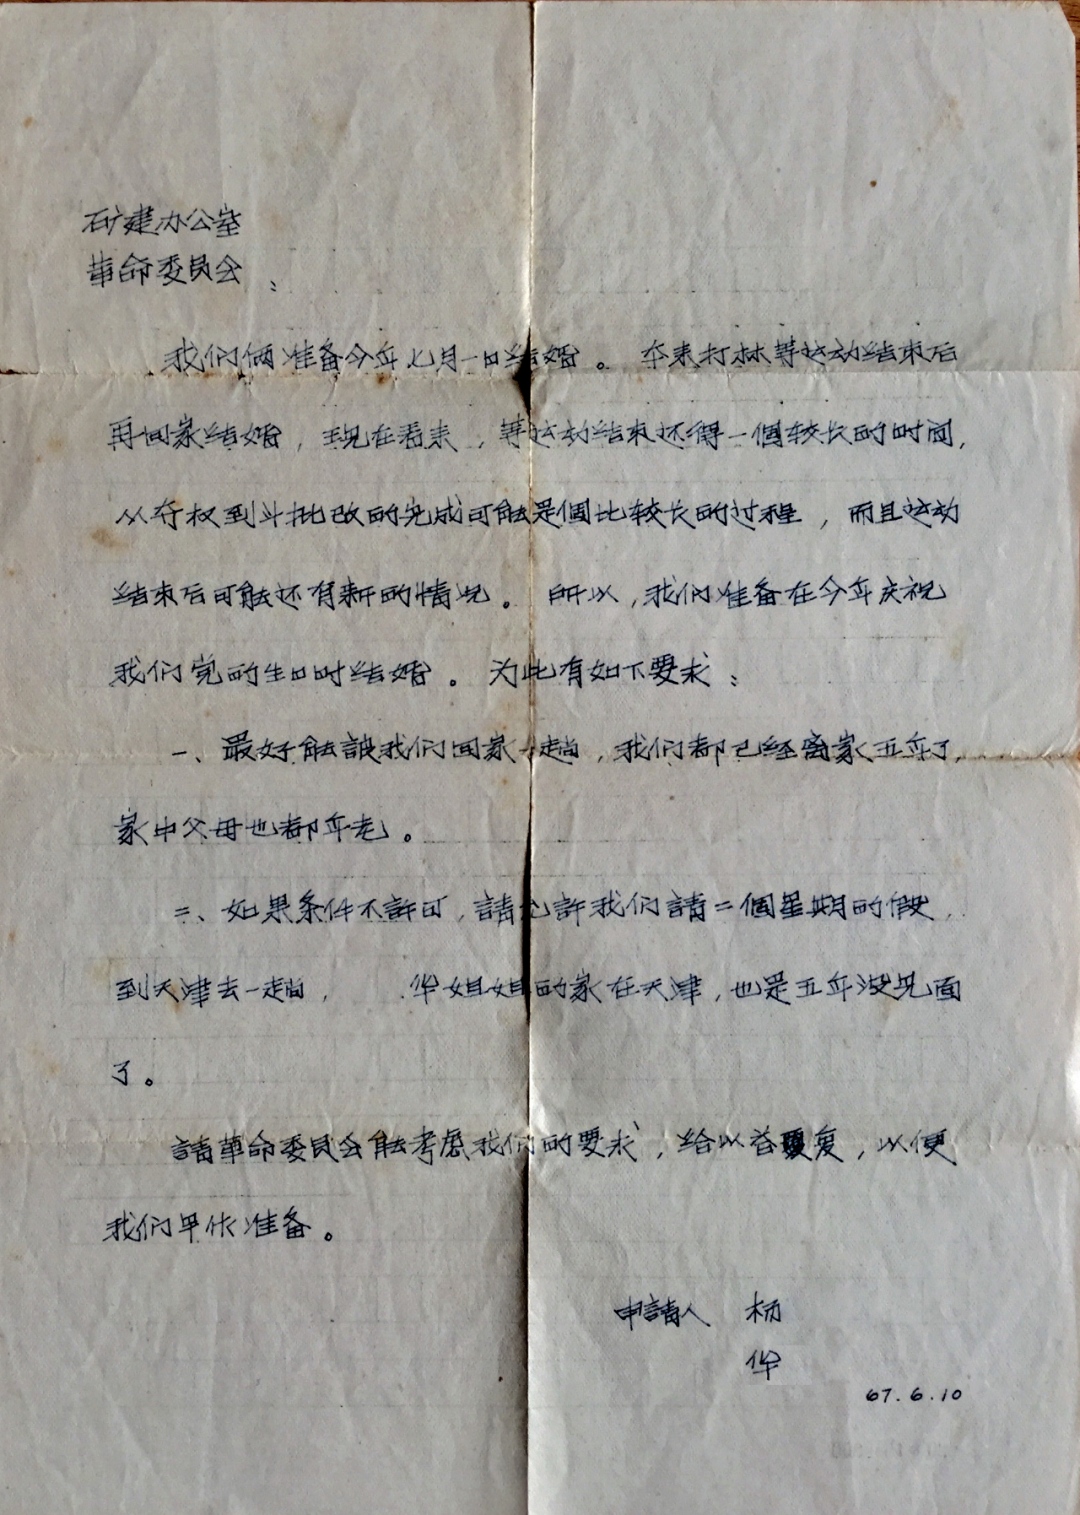 矿建办公室
革命委员会：
我们俩准备今年七月一日结婚。本来打林等运动结束后
再回家结婚，现在看来，等运动结束还得一個较长的时间，
从夺权到斗批改的完成可能是個比较长的过程，而且运动
结束后可能还有新的情况。所以，我们准备在今年庆祝
我们党的生日时结婚。为此有如下要求：
一、最好能讓我们回家一趟，我们都已经离家五年了，
家中父母也都年老。
二、如果条件不許可，請允許我们請二個星期的假，
到天津去一趟，华姐姐的家在天津，也是五年没见面
了。
請革命委员会能考虑我们的要求，给以答复，以便
我们早作准备。
申請人 杨
华
67.6.10